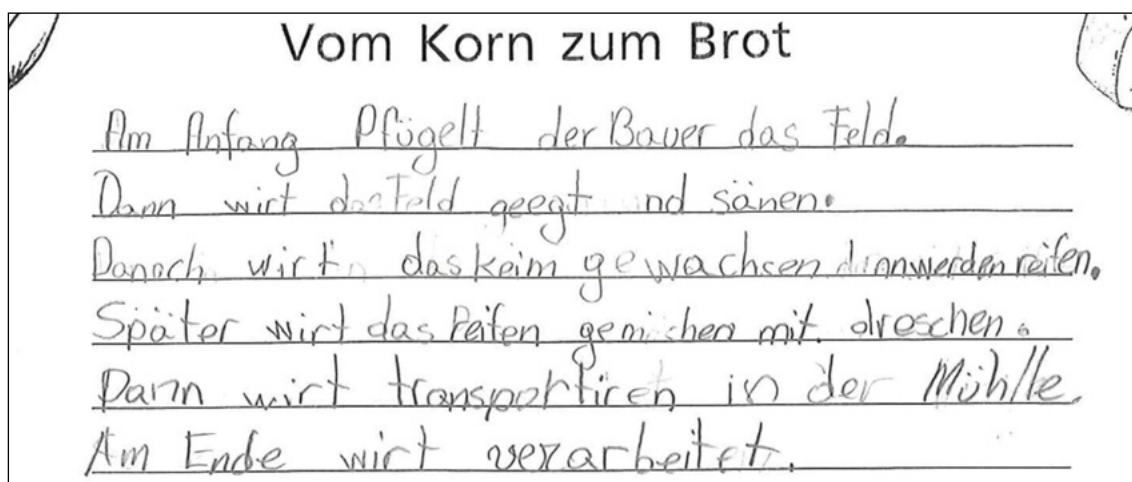 Vom Korn zum Brot
Am Anfang Pfügelt der Bauer das Feld.
Dann wirt das Feld geegt und sänen.
Danach wirt das keim gewachsen dann werden reifen.
Später wirt das Reifen gemischen mit dreschen.
Dann wirt transportiren in der Mühlle.
Am Ende wirt verarbeitet.